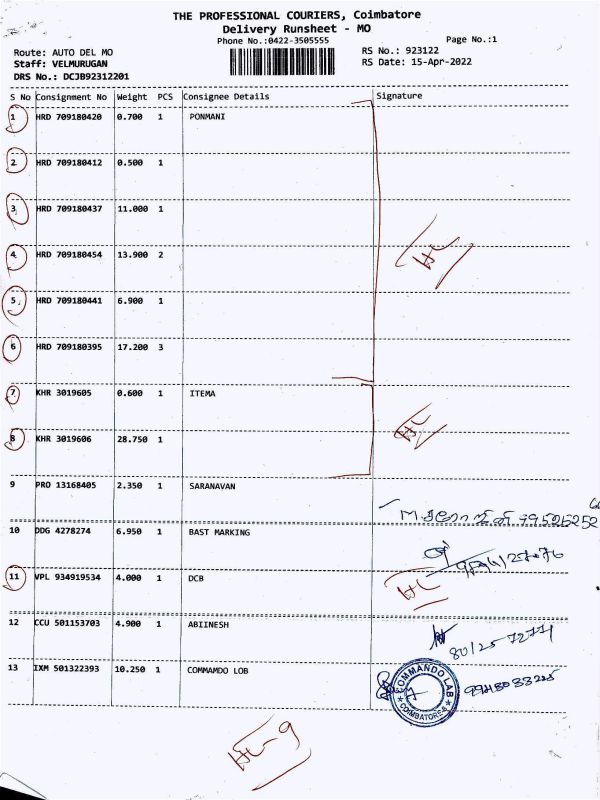 THE PROFESSIONAL COURIERS, Coimbatore
Delivery Runsheet - MO
Phone No.:0422-3505555
Page No.:1
Route: AUTO DEL MO
RS No.: 923122
Staff: VELMURUGAN
RS Date: 15-Apr-2022
DRS No.: DCJB92312201
S No Consignment No Weight PCS Consignee Details Signature
1 HRD 709180420 0.700 1 PONMANI
2 HRD 709180412 0.500 1
3 HRD 709180437 11.000 1
4 HRD 709180454 13.900 2
5 HRD 709180441 6.900 1
6 HRD 709180395 17.200 3
7 KHR 3019605 0.600 1 ITEMA
8 KHR 3019606 28.750 1
9 PRO 13168405 2.350 1 SARANAVAN
10 DDG 4278274 6.950 1 BAST MARKING
11 VPL 934919534 4.000 1 DCB
12 CCU 501153703 4.900 1 ABIINESH
13 IXM 501322393 10.250 1 COMMANDO LOB
COMMANDO LAB
COIMBATORE-6